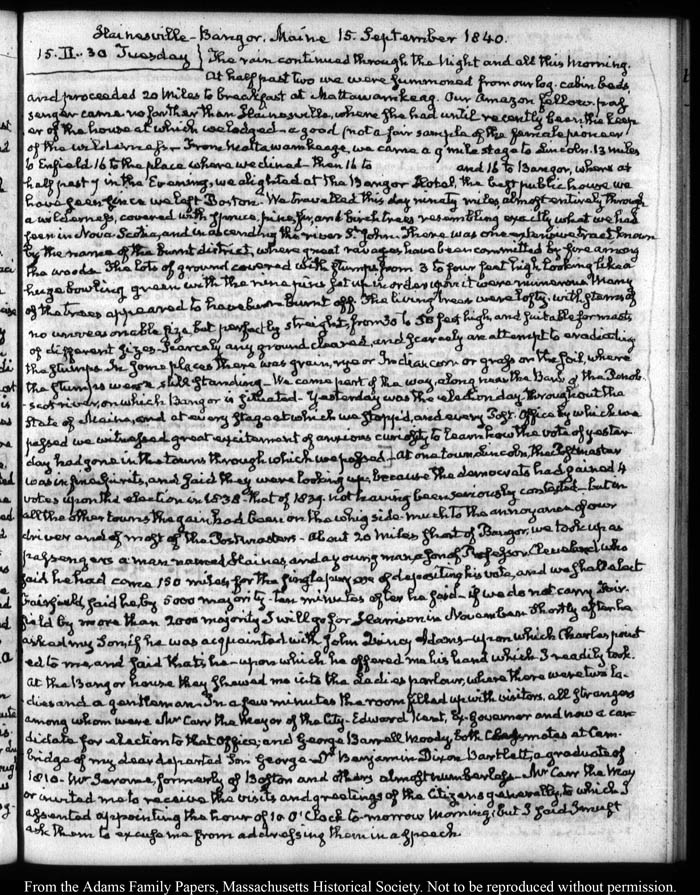 Hainesville - Bangor, Maine 15. September 1840.
15. II. 30 Tuesday } The rain continued through the Night and all this Morning.
At half past two we were summoned from our log-cabin beds,
and proceeded 20 Miles to breakfast at Mattawamkeag. Our Amazon fellow-pas-
senger came no farther than Hainesville, where she had until recently been the keep-
er of the house at which we lodged - a good (not a fair sample of the female pioneer
of the wilderness - From Mattawamkeage, we came a 9 mile stage to Lincoln. 13 miles
to Enfield 16 to the place where we dined - then 16 to and 16 to Bangor, where at
half past 7 in the Evening, we alighted at the Bangor Hotel, the best public house we
have seen since we left Boston. We travelled this day ninety miles almost entirely through
a wilderness, covered with spruce, pine, fir, and birch trees resembling exactly what we had
seen in Nova-Scotia, and in ascending the river St. John. There was one extensive tract known
by the name of the burnt district, where great ravages have been committed by fire among
the woods. The lots of ground covered with stumps from 3 to four feet high looking like a
huge bowling green with the nine pins set up in order upon it were numerous. Many
of the trees appeared to have been burnt off. The living trees were lofty, with stems of
no unreasonable size but perfectly straight, from 30 to 50 feet high, and suitable for masts
of different sizes. Scarcely any ground cleared, and scarcely an attempt to eradicating
the stumps. In some places there was grain, rye or Indian corn, or grass on the soil, where
the stumps were still standing - We came part of the way, along near the Bank of the Penob-
scot river, on which Bangor is situated - Yesterday was the election day throughout the
State of Maine, and at every stage at which we stopped, and every Post-Office by which we
passed we witnessed great excitement of anxious curiosity to learn how the vote of yester-
day had gone in the towns through which we passed - At one town, Lincoln, the Postmaster
was in fine spirits, and said they were looking up; because the democrats had gained 4
votes upon the election in 1838 - that of 1839 - not having been seriously contested - but in
all the other towns the gain had been on the whig side - much to the annoyance of our
driver and of most of the Postmasters - About 20 Miles short of Bangor, we took up as
passengers a man named Haines, and a young man, a son of Professor Cleveland who
said he had come 150 miles, for the single purpose of depositing his vote, and we shall elect
Fairfield, said he, by 5000 majority - ten minutes after he said - if we do not carry Fair-
field by more than 2000 majority I will go for Harrison in November. Shortly after he
asked my Son, if he was acquainted with John Quincy Adams - upon which Charles point-
ed to me and said that's he - upon which he offered me his hand which I readily took.
At the Bangor house they shewed me into the Ladies parlour, where there were two La-
dies and a gentleman. In a few minutes the room filled up with visitors, all strangers
among whom were Mr Carr the Mayor of the City - Edward Kent, Ex-Governor and now a can-
didate for election to that Office; and George Barrell Moody, both Classmates at Cam-
bridge of my dear departed Son George - Dr Benjamin Dixon Bartlett, a graduate of
1810 - Mr Jerome, formerly of Boston and others almost numberless - Mr Carr the May-
or invited me to receive the visits and greetings of the Citizens generally, to which I
assented appointing the hour of 10 O'Clock to-morrow Morning; but I said I must
ask them to excuse me from addressing them in a speech.
From the Adams Family Papers, Massachusetts Historical Society. Not to be reproduced without permission.